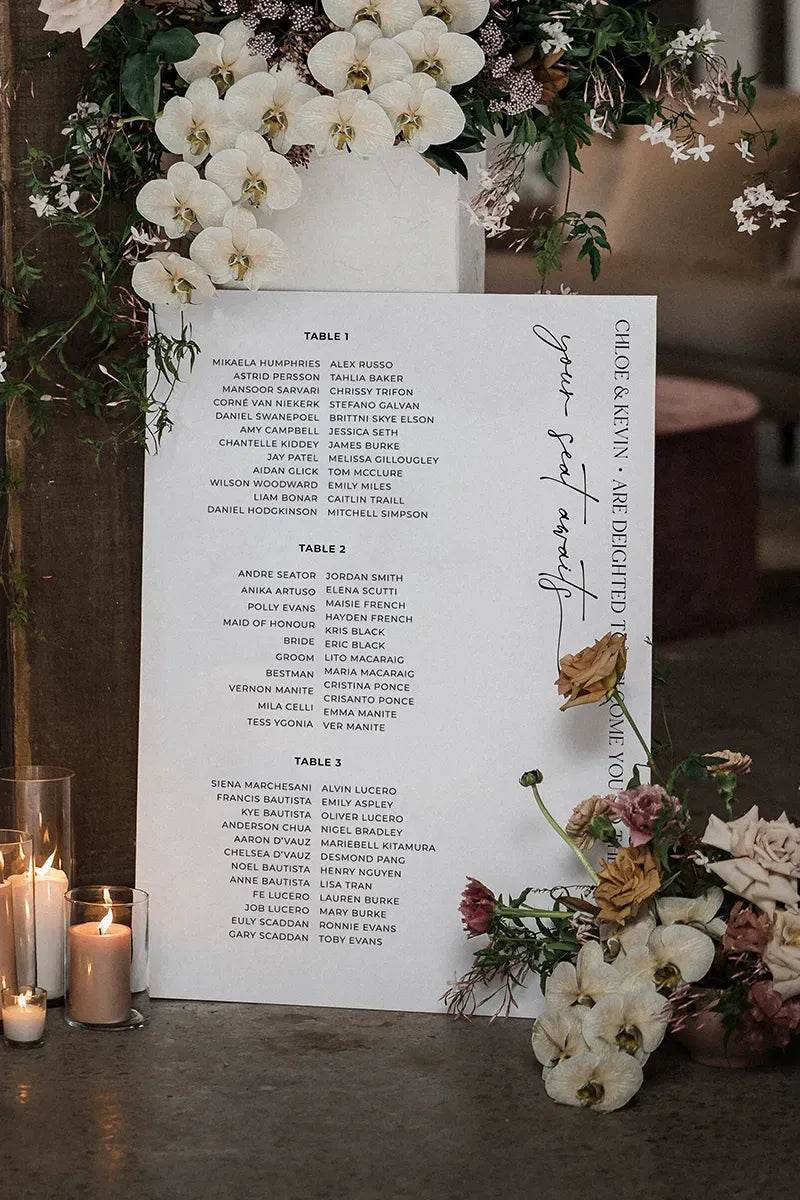 TABLE 1
MIKAELA HUMPHRIES ALEX RUSSO
ASTRID PERSSON TAHLIA BAKER
MANSOOR SARVARI CHRISSY TRIFON
CORNÉ VAN NIEKERK STEFANO GALVAN
DANIEL SWANEPOEL BRITTNI SKYE ELSON
AMY CAMPBELL JESSICA SETH
CHANTELLE KIDDEY JAMES BURKE
JAY PATEL MELISSA GILLOUGLEY
AIDAN GLICK TOM MCCLURE
WILSON WOODWARD EMILY MILES
LIAM BONAR CAITLIN TRAILL
DANIEL HODGKINSON MITCHELL SIMPSON
TABLE 2
ANDRE SEATOR
ANIKA ARTUSO
POLLY EVANS
MAID OF HONOUR
BRIDE
GROOM
BESTMAN
VERNON MANITE
MILA CELLI
TESS YGONIA
JORDAN SMITH
ELENA SCUTTI
MAISIE FRENCH
HAYDEN FRENCH
KRIS BLACK
ERIC BLACK
LITO MACARAIG
MARIA MACARAIG
CRISTINA PONCE
CRISANTO PONCE
EMMA MANITE
VER MANITE
TABLE 3
SIENA MARCHESANI ALVIN LUCERO
FRANCIS BAUTISTA EMILY ASPLEY
KYE BAUTISTA OLIVER LUCERO
ANDERSON CHUA NIGEL BRADLEY
AARON D'VAUZ MARIEBELL KITAMURA
CHELSEA D'VAUZ DESMOND PANG
NOEL BAUTISTA HENRY NGUYEN
ANNE BAUTISTA LISA TRAN
FE LUCERO LAUREN BURKE
JOB LUCERO MARY BURKE
EULY SCADDAN RONNIE EVANS
GARY SCADDAN TOBY EVANS
your seat awaits
CHLOE & KEVIN • ARE DEIGHTED YOU